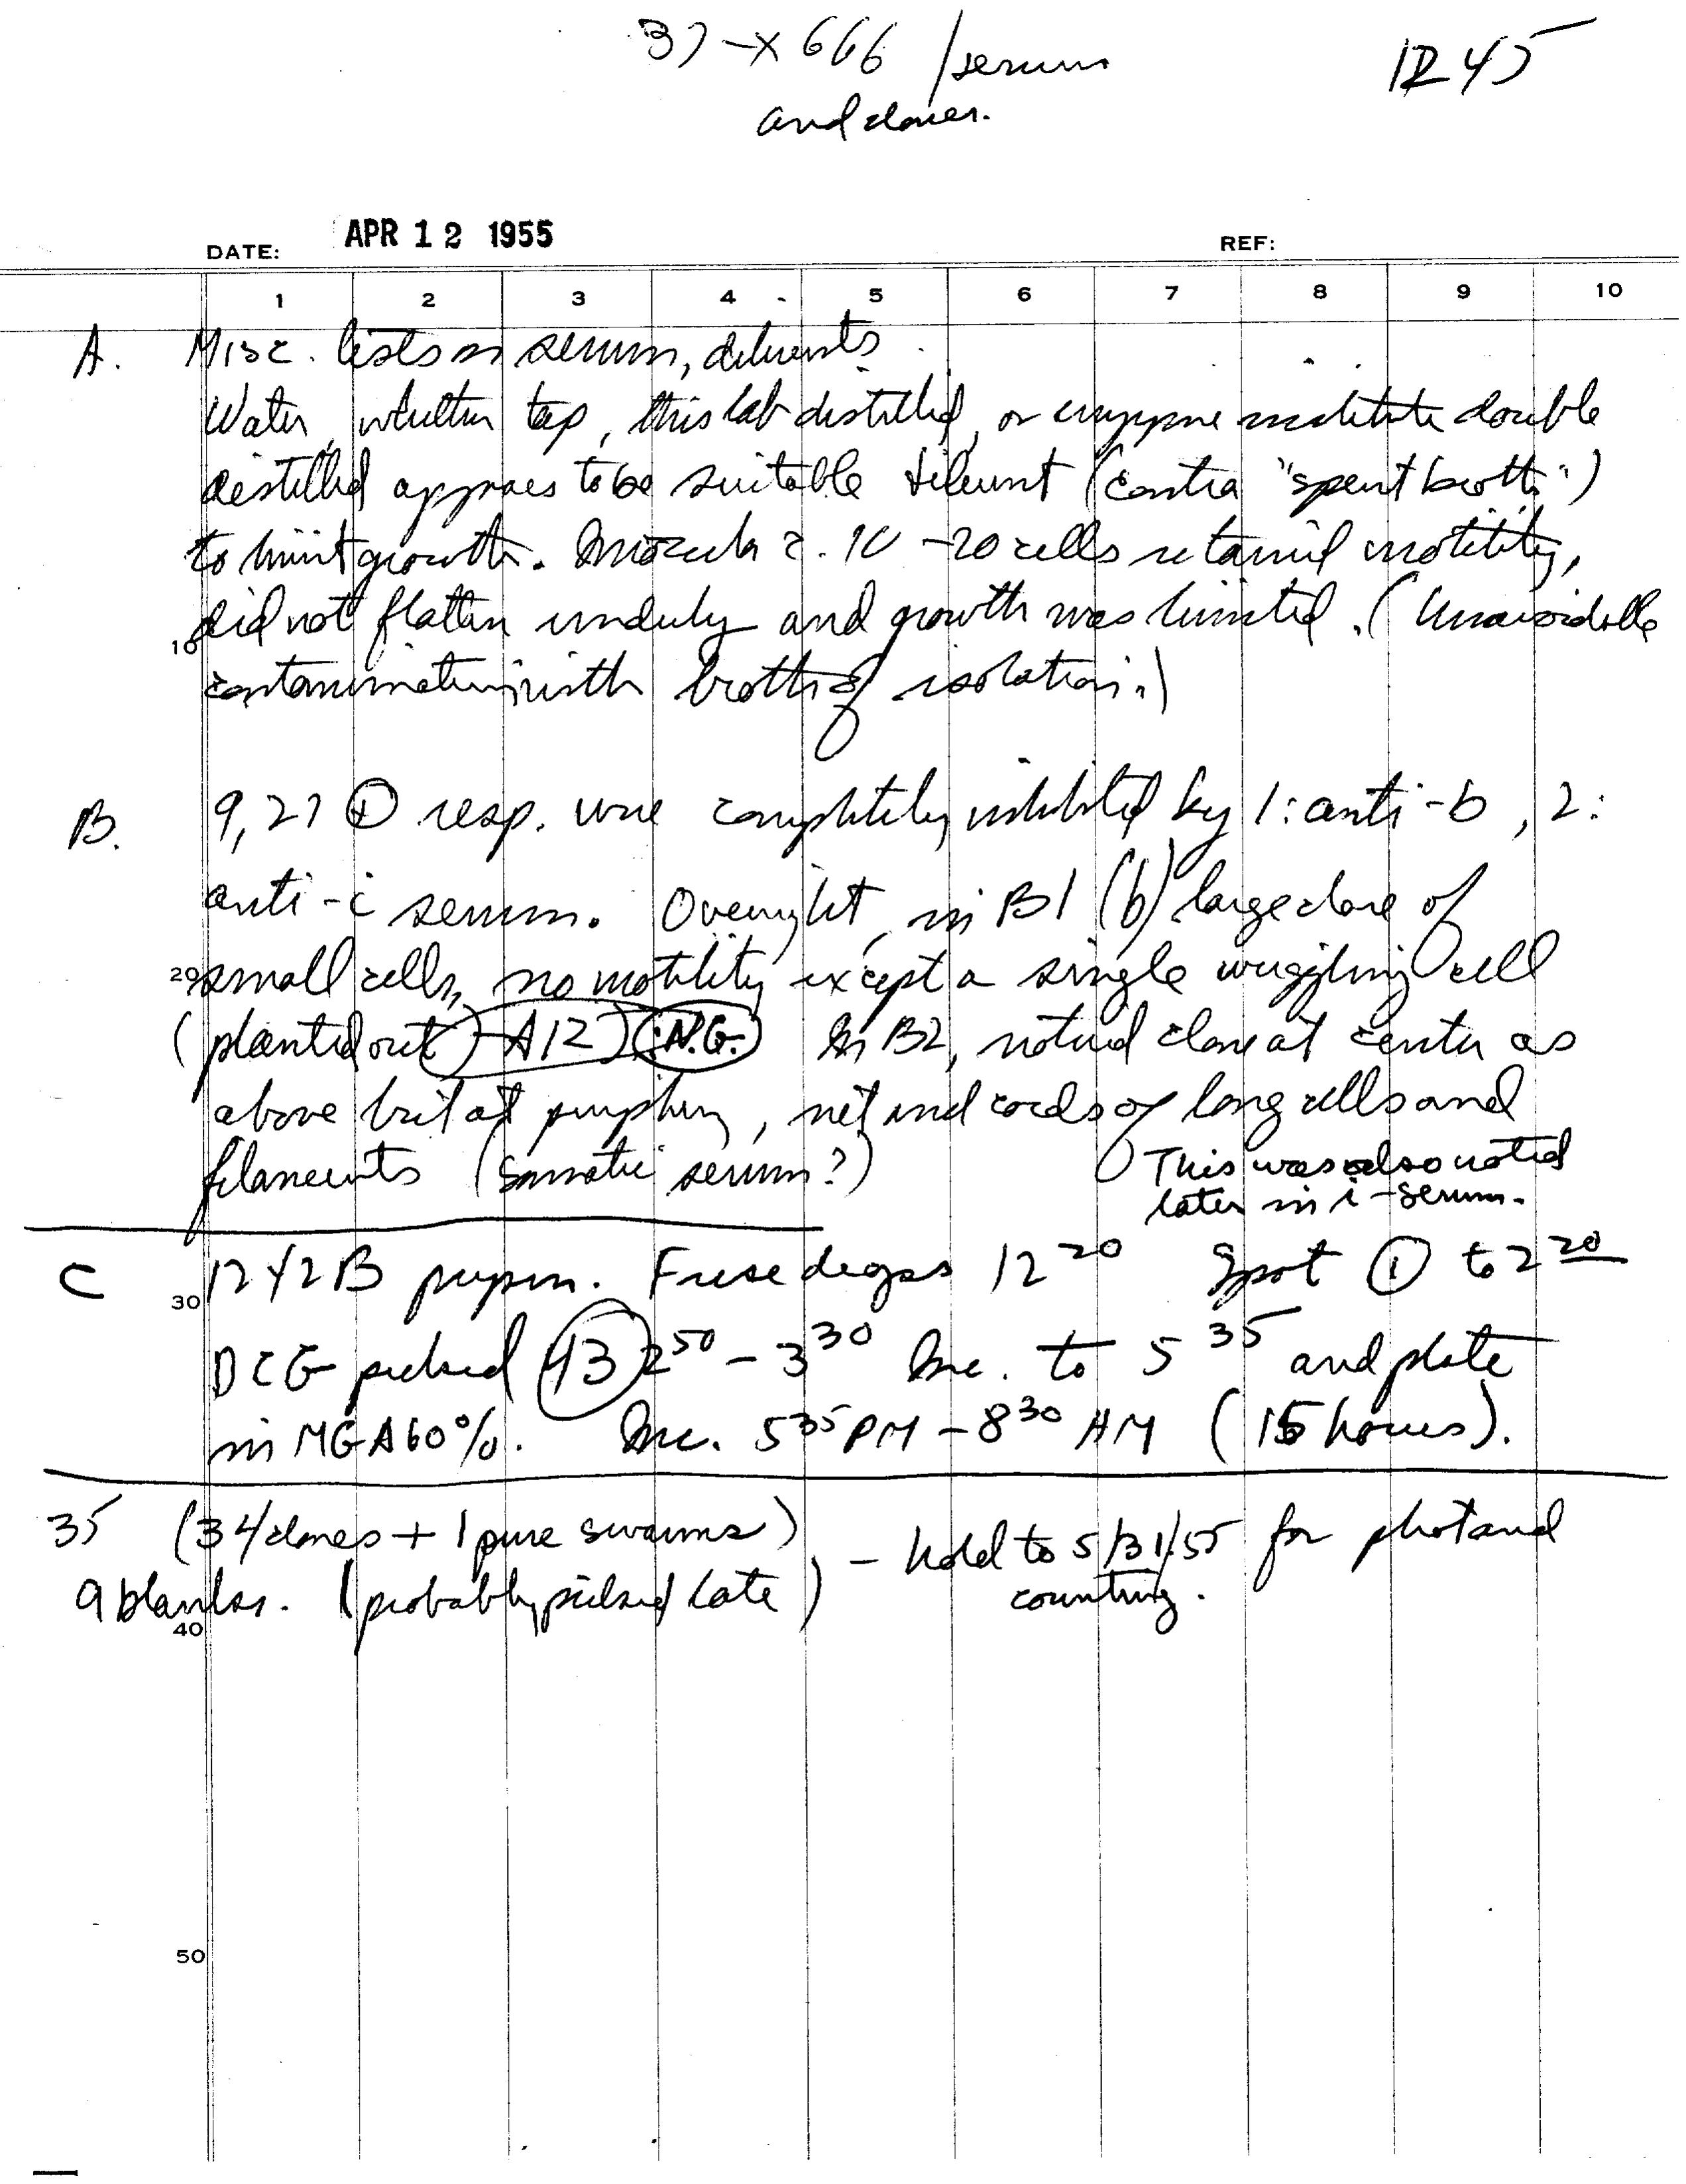 37 -x 666 /serum
and clones.
1245
DATE: APR 12 1955 REF:
1 2 3 4 5 6 7 8 9 10
A. Misc. tests on serum, diluents
Water, whether tap, this lab distilled, or enzyme institute double
distilled appears to be suitable diluent (contra "spent broth")
to limit growth. Inocula c. 10-20 cells retained motility,
did not flatten unduly and growth was limited. (Unavoidable
10
contamination with broth of isolation.)
B. 9, 27 ① resp. were completely inhibited by 1: anti-b, 2:
anti-i serum. Overnight, in B1 (b) large clone of
20 small cells, no motility except a single wriggling cell
(planted out) A12 N.G. In B2, noted clone at center as
above but at periphery, net and cords of long cells and
filaments (somatic serum?) This was also noted
later in i-serum.
C 1242B prepn. Fuse drops 12 20 Spot ① to 2 20
30
DCG picked 43 2 50 - 3 30 Inc. to 5 35 and plate
in MGA60%. Inc. 5 35 PM - 8 30 AM (15 hours).
35 (34 clones + 1 pure swarms) - hold to 5/31/55 for phot and
9 blanks. (probably picked late) counting.
40
50